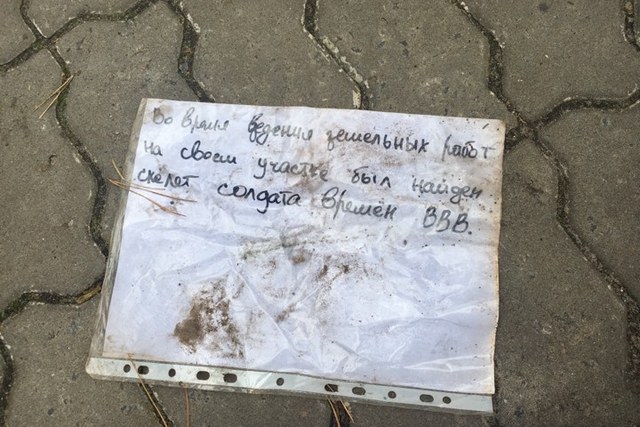 Во время ведения земельных работ
на своем участке был найден
скелет солдата времён ВВВ.